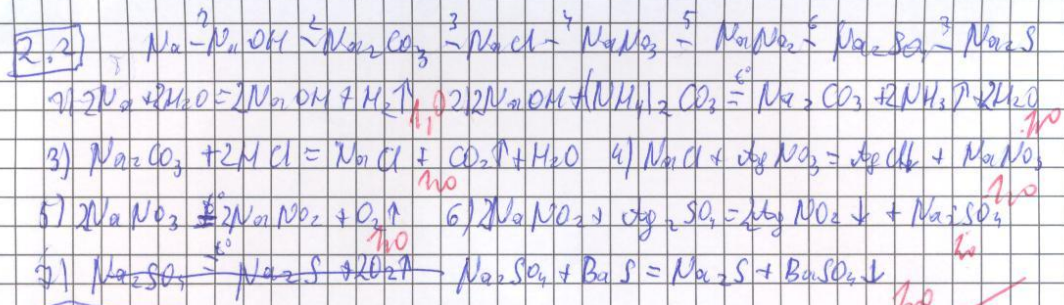 2.2) Na -1 NaOH -2 Na2CO3 -3 NaCl -4 NaNO3 -5 NaNO2 -6 Na2SO4 -7 Na2S
1) 2Na + 2H2O = 2NaOH + H2↑ 1,0 2) 2NaOH + (NH4)2CO3 =t° Na2CO3 + 2NH3↑ + 2H2O 1,0
3) Na2CO3 + 2HCl = NaCl + CO2↑ + H2O 1,0 4) NaCl + AgNO3 = AgCl↓ + NaNO3 1,0
5) 2NaNO3 =t° 2NaNO2 + O2↑ 1,0 6) 2NaNO2 + Ag2SO4 = 2AgNO2↓ + Na2SO4 1,0
7) Na2SO4 =t° Na2S + 2O2↑ Na2SO4 + BaS = Na2S + BaSO4↓ 1,0